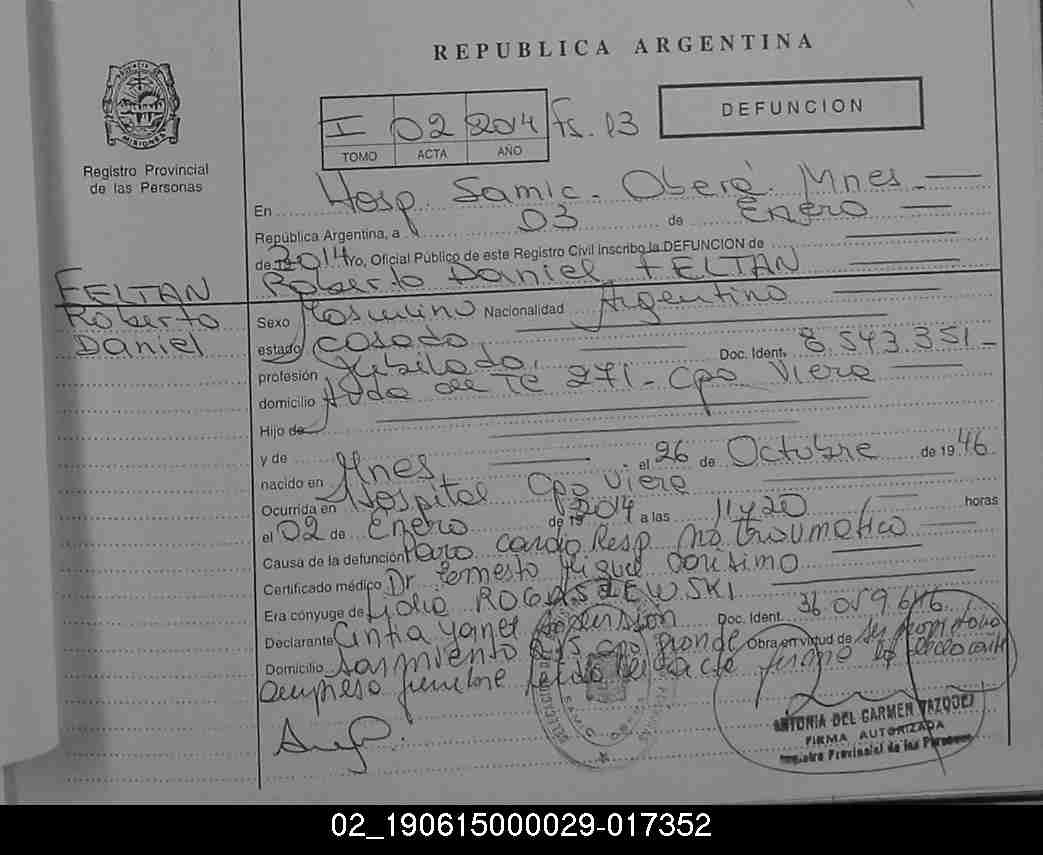 REPUBLICA ARGENTINA
MISIONES
Registro Provincial
de las Personas
I 02 2014 fs. 13
TOMO ACTA AÑO
DEFUNCION
En Hosp. Samic. Oberá. Mnes
República Argentina, a 03 de Enero
de 2014 yo, Oficial Público de este Registro Civil inscribo la DEFUNCION de
Roberto Daniel FELTAN
FELTAN
Roberto
Daniel
Sexo Masculino Nacionalidad Argentino
estado Casado
profesión Jubilado. Doc. Ident. 8.543.351
domicilio Avda de Te 271 - Cpo Viera
Hijo de
y de
nacido en Mnes el 26 de Octubre de 1946
Ocurrida en Hospital Cpo Viera
el 02 de Enero de 2014 a las 11 y 20 horas
Causa de la defunción Paro cardio Resp no traumatico
Certificado médico Dr. Ernesto Miguel
Era cónyuge de Lidia ROGASZEWSKI
Declarante Cintia Yanet Doc. Ident. 36.059.646
Domicilio Sarmiento cpo grande Obra en virtud de ser
empresa funebre leida el acta firma la
ANTONIA DEL CARMEN VAZQUEZ
FIRMA AUTORIZADA
Registro Provincial de las Personas
02_190615000029-017352